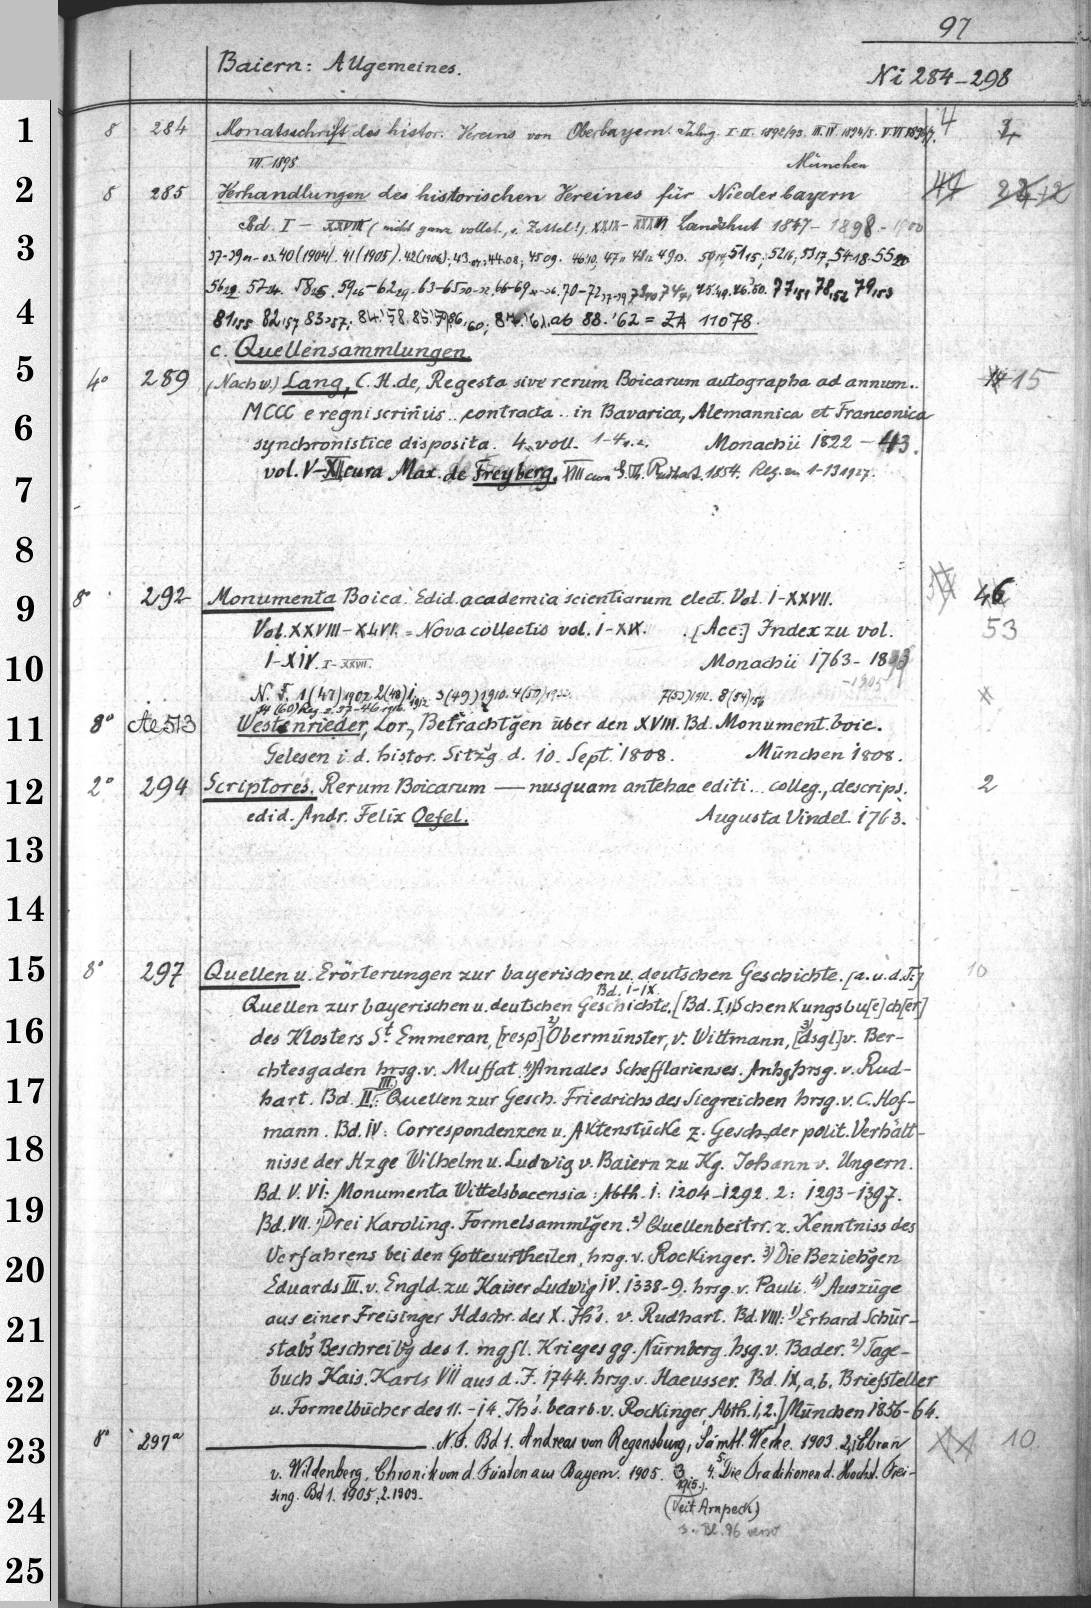 97
Baiern: Allgemeines.
Ni 284-298
1 8 284 Monatsschrift des histor. Vereins von Oberbayern. Jahrg. I-II. 1892/93. III. IV. 1894/5. V. VI 4
VII. 1898 München
2 8 285 Verhandlungen des historischen Vereines für Niederbayern
Bd. I - XXVIII (nicht ganz vollst., s. Zettel!), XXIX- Landshut 1847-1898-1900
3 40 (1904). 41 (1905). 42 (1906),
4 81,55 82,57 83,57, 84,'58. ab 88.'62 = ZA 11078.
c. Quellensammlungen.
5 4° 289 (Nachw.) Lang, C. H. de, Regesta sive rerum Boicarum autographa ad annum.. 15
6 MCCC e regni scriniis.. contracta.. in Bavarica, Alemannica et Franconica
synchronistice disposita. 4 voll. 1-4 Monachii 1822-43.
7 vol. V-XII cura Max. de Freyberg, XIII cura Rudhart. 1854. Reg. zu 1-13 1927.
8
9 8° 292 Monumenta Boica. Edid. academia scientiarum elect. Vol. I-XXVII. 46
Vol. XXVIII-XLVI. = Nova collectio vol. I-XIX. [Acc:] Index zu vol. 53
10 I-XIV. I-XXVII. Monachii 1763-
-1905
N. F. 1 (47) 1902. 2(48) 3 (49) 1910. 4(50) 7(53) 1912. 8(54)
11 8° Ae 513 Westenrieder, Lor., Betrachtg̃en über den XVIII. Bd. Monument. boic.
Gelesen i. d. histor. Sitzg d. 10. Sept. 1808. München 1808.
12 2° 294 Scriptores. Rerum Boicarum — nusquam antehac editi... colleg., descrips. 2
edid. Andr. Felix Oefel. Augusta Vindel. 1763.
13
14
15 8° 297 Quellen u. Erörterungen zur bayerischen u. deutschen Geschichte. [a. u. d. T:] 10
Bd. I-IX.
Quellen zur bayerischen u. deutschen Geschichte. [Bd. I, 1) Schenkungsbu[e]ch[er]
16 des Klosters St. Emmeran, [resp] 2) Obermünster, v. Wittmann, 3) [dsgl] v. Ber-
chtesgaden hrsg. v. Muffat. 4) Annales Schefflarienses. Anhg hrsg. v. Rud-
17 hart. Bd. II. III. Quellen zur Gesch. Friedrichs des Siegreichen hrsg. v. C. Hof-
mann. Bd. IV: Correspondenzen u. Aktenstücke z. Gesch. der polit. Verhält-
18 nisse der Hzge Wilhelm u. Ludwig v. Baiern zu Kg. Johann v. Ungern.
Bd. V. VI: Monumenta Wittelsbacensia: Abth. 1: 1204-1292. 2: 1293-1397.
19 Bd. VII. 1) Drei Karoling. Formelsammlg̃en. 2) Quellenbeitrr. z. Kenntniss des
Verfahrens bei den Gottesurtheilen, hrsg. v. Rockinger. 3) Die Beziehg̃en
20 Eduards III. v. Engld. zu Kaiser Ludwig IV. 1338-9. hrsg. v. Pauli. 4) Auszüge
aus einer Freisinger Hdschr. des X. Jh's. v. Rudhart. Bd. VIII: 1) Erhard Schür-
21 stab's Beschreibg des 1. mgfl. Krieges gg. Nürnberg. hsg. v. Bader. 2) Tage-
buch Kais. Karls VII aus d. J. 1744. hrsg. v. Haeusser. Bd. IX, a, b. Briefsteller
22 u. Formelbücher des 11.-14. Jh's. bearb. v. Rockinger, Abth. 1, 2.] München 1856-64.
23 8° 297a ——— N.F. Bd 1. Andreas von Regensburg, Sämtl. Werke. 1903. 2, Ebran 10
v. Wildenberg. Chronik von d. Fürsten aus Bayern. 1905. 3 4. 5. Die Traditionen d. Hochst. Frei-
24 sing. Bd 1. 1905, 2. 1909. 1915.
(Veit Arnpeck)
s. Bl. 96 verso
25